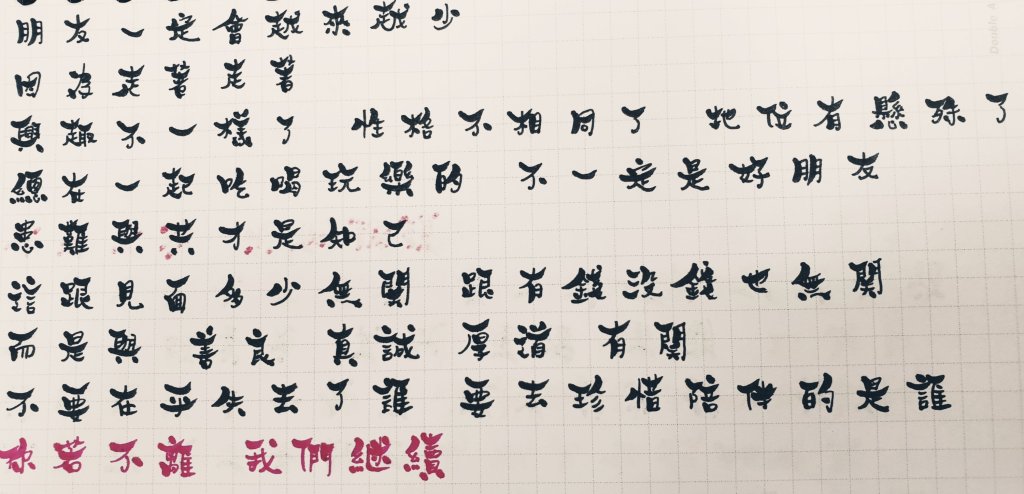 朋友一定會越來越少
因為走著走著
興趣不一樣了 性格不相同了 地位有懸殊了
總在一起吃喝玩樂的 不一定是好朋友
患難與共才是知己
這跟見面多少無關 跟有錢沒錢也無關
而是與 善良 真誠 厚道 有關
不要在乎失去了誰 要去珍惜陪伴的是誰
你若不離 我們繼續
Double A